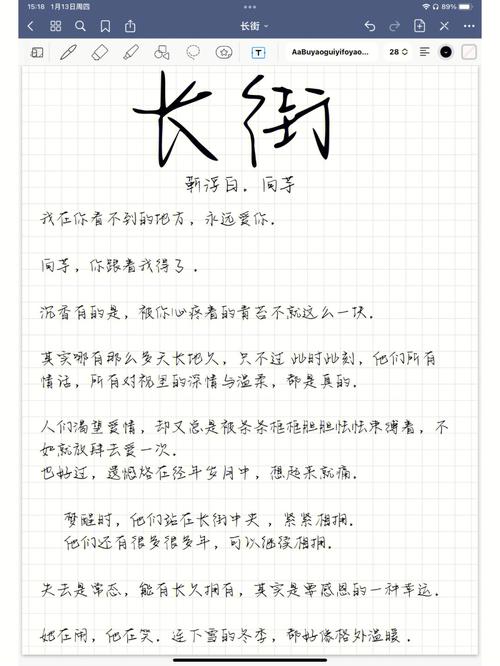 15:18 1月13日周四
89%
长街
AaBuyaoguiyifoyao...
28
T
长街
靳浮白.向芋
我在你看不到的地方，永远爱你.
向芋，你跟着我得了.
沉香有的是，被你心疼着的青苔不就这么一块.
其实哪有那么多天长地久，只不过此时此刻，他们所有
情话，所有对视里的深情与温柔，都是真的.
人们渴望爱情，却又总是被条条框框胆胆怯怯束缚着，不
如就放肆去爱一次.
也好过，遗憾烙在经年岁月中，想起来就痛.
梦醒时，他们站在长街中央，紧紧相拥.
他们还有很多很多年，可以继续相拥.
失去是常态，能有长久拥有，其实是零感恩的一种幸运.
她在闹，他在笑.连下雪的冬季，都好像格外温暖.